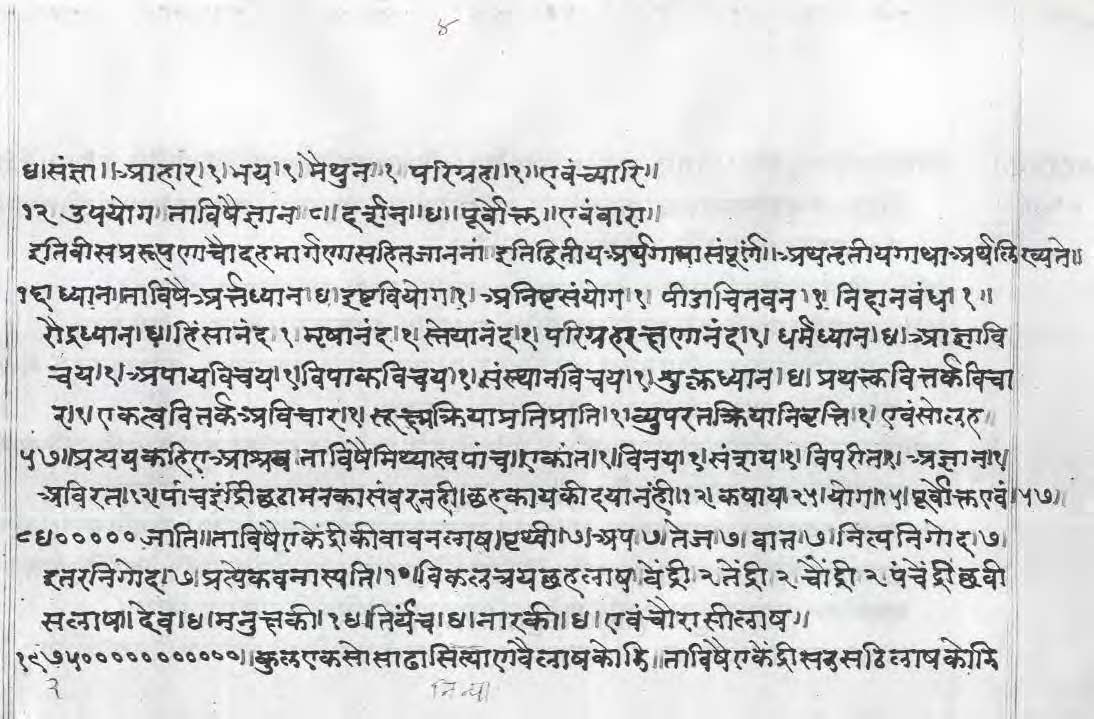 ४
४।संज्ञा॥आहार।१।भय।१।मैथुन।१।परिग्रह।१।एवंच्यारि॥
१२ उपयोग।ताविषैज्ञान।८।दर्शन॥४॥पूर्वोक्त॥एवंबारा॥
इतिवीसप्ररूपणाचौदहमार्गणासहितजाननां।इतिद्वितीयअर्थगाथासंपूर्ण॥अथतृतीयगाथाअर्थलिख्यते॥
१६।ध्यान।ताविषैआर्त्तध्यान।४।इष्टवियोग।१।अनिष्टसंयोग।१।पीडाचितवन।१।निदानबंध।१॥
रौद्रध्यान।४।हिंसानंद।१।मृषानंद।१।स्तेयानंद।१।परिग्रहरक्षणानंद।१।धर्मध्यान।४।आज्ञावि
चय।१।अपायविचय।१।विपाकविचय।१।संस्थानविचय।१।शुक्लध्यान।४।प्रथक्तवितर्कविचा
र।१।एकत्ववितर्कअविचार।१।सूक्ष्मक्रियाप्रतिपाति।१।व्युपरतक्रियानिवृत्ति।१।एवंसोलह॥
५७॥प्रत्ययकहिएआश्रव।ताविषैमिथ्यात्वपांच।एकांत।१।विनय।१।संशय।१।विपरीत।१।अज्ञान।१।
अविरत।१२।पांचइंद्रीछठामनकासंवरनही।छहकायकीदयानंही।१२।कषाय।२५।योग।१५।पूर्वोक्तएवं।५७॥
८४०००००जाति॥ताविषैएकेंद्रीकीवावनलाष।पृथ्वी।७।अप।७।तेज।७।वात।७।नित्यनिगोद।७।
इतरनिगोद।७।प्रत्येकवनास्पति।१०।विकलत्रयछहलाष।बेंद्री।२।तेंद्री।२।चौंद्री।२।पंचेंद्रीछवी
सलाष।देव।४।मनुक्षकी।१४।तिर्यंच।४।नारकी।४।एवंचौरासीलाष॥
१९७५००००००००००००॥कुलएकसोसाढासित्याणवैलाषकोडि॥ताविषैएकेंद्रीसडसठिलाषकोडि
२